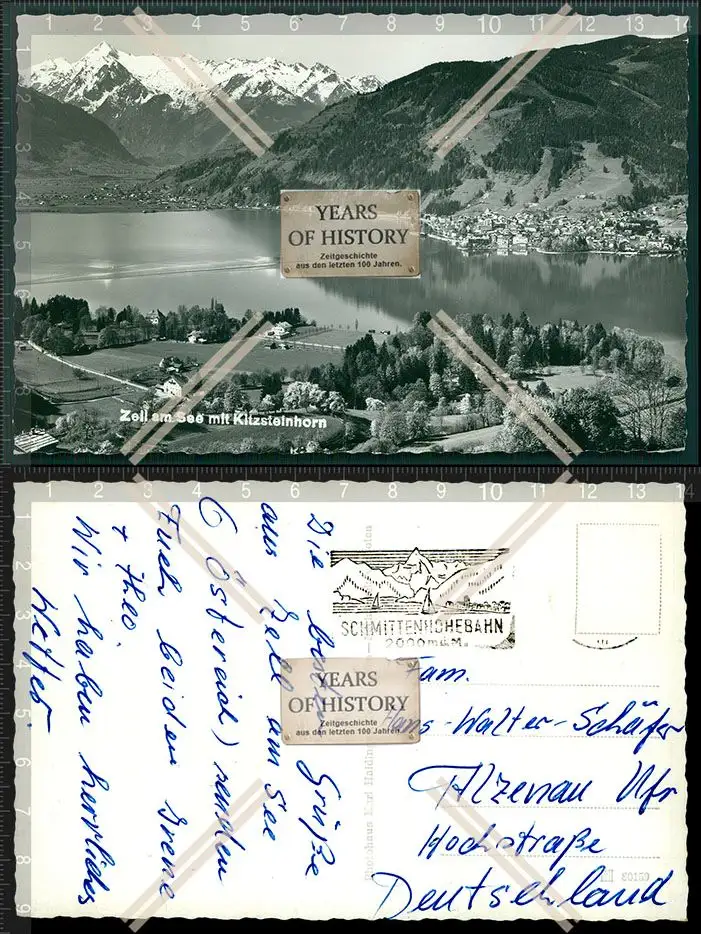 YEARS
OF HISTORY
Zeitgeschichte
aus den letzten 100 Jahren.
Zell am See mit Kitzsteinhorn
Die besten Grüße
aus Zell am See
(Östereich) senden
Euch beiden Irene
+ Theo.
Wir haben herrliches
Wetter.
SCHMITTENHÖHEBAHN
2000 m.ü.M.
YEARS
OF HISTORY
Zeitgeschichte
aus den letzten 100 Jahren.
Fam.
Hans-Walter-Schäfer
Alzenau Ufr
Hochstraße
Deutschland